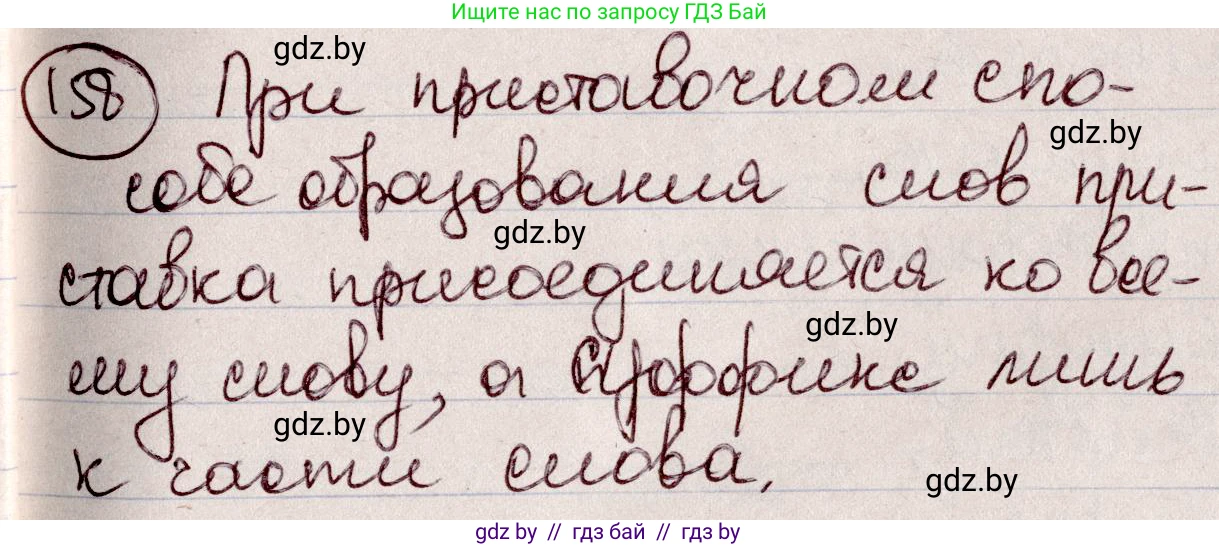 Ищите нас по запросу ГДЗ Бай
gdz.by
158 При приставочном спо-
gdz.by
собе образования слов при-
gdz.by
ставка присоединяется ко все-
gdz.by
му слову, а суффикс лишь
gdz.by
к части слова.
gdz.by
gdz by // гдз бай // гдз by